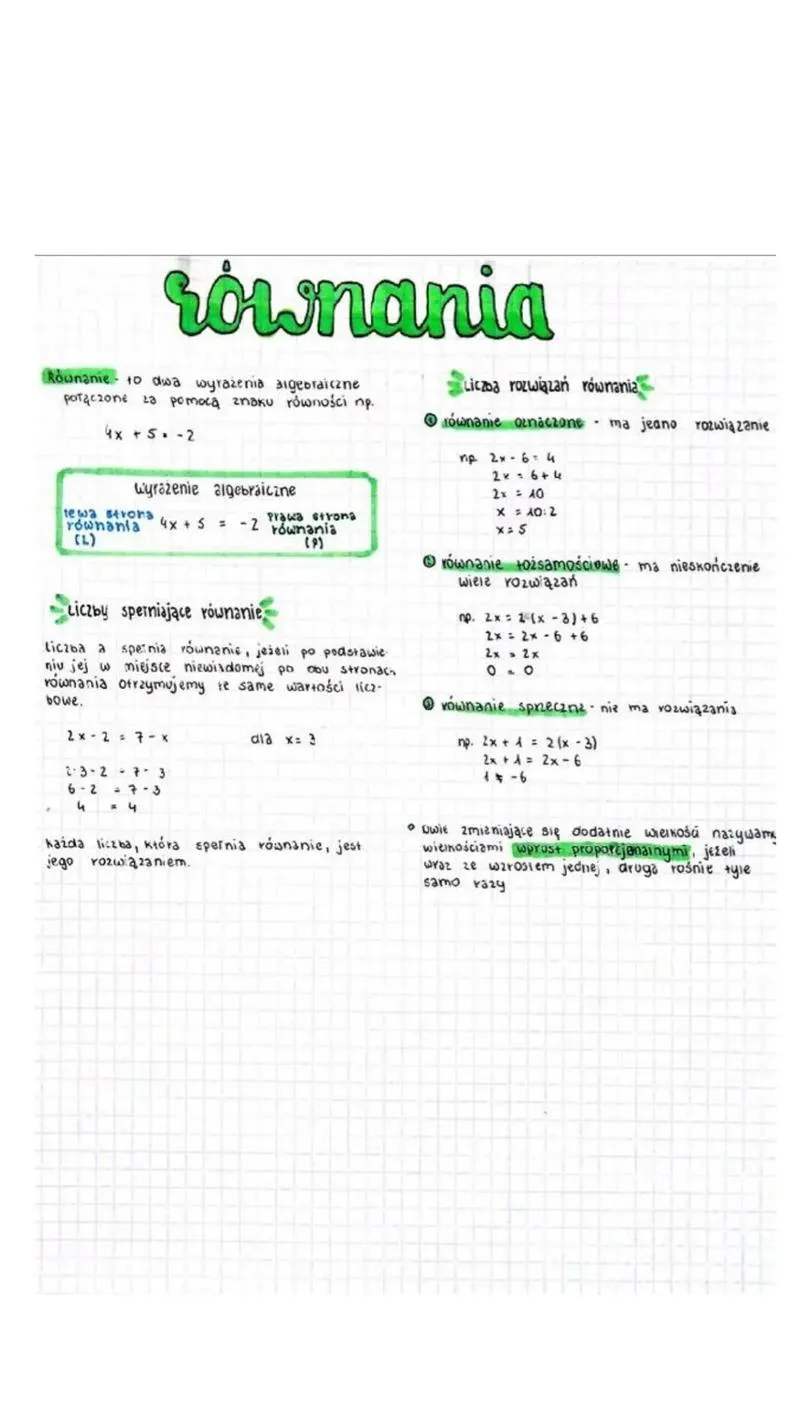 równania
Równanie - to dwa wyrażenia algebraiczne
połączone za pomocą znaku równości np.
4x + 5 = -2
Wyrażenie algebraiczne
lewa strona
równania
(L)
4x + 5 = -2
Prawa strona
równania
(P)
Liczby spełniające równanie
Liczba a spełnia równanie, jeżeli po podstawie-
niu jej w miejsce niewiadomej po obu stronach
równania otrzymujemy te same wartości licz-
bowe.
2x - 2 = 7 - x dla x = 3
2·3 - 2 = 7 - 3
6 - 2 = 7 - 3
4 = 4
Każda liczba, która spełnia równanie, jest
jego rozwiązaniem.
Liczba rozwiązań równania
1 równanie oznaczone - ma jedno rozwiązanie
np. 2x - 6 = 4
2x = 6 + 4
2x = 10
x = 10:2
x = 5
2 równanie tożsamościowe - ma nieskończenie
wiele rozwiązań
np. 2x = 2(x - 3) + 6
2x = 2x - 6 + 6
2x = 2x
0 = 0
3 równanie sprzeczne - nie ma rozwiązania
np. 2x + 1 = 2(x - 3)
2x + 1 = 2x - 6
1 ≠ -6
° Dwie zmieniające się dodatnie wielkości nazywamy
wielkościami wprost proporcjonalnymi, jeżeli
wraz ze wzrostem jednej, druga rośnie tyle
samo razy